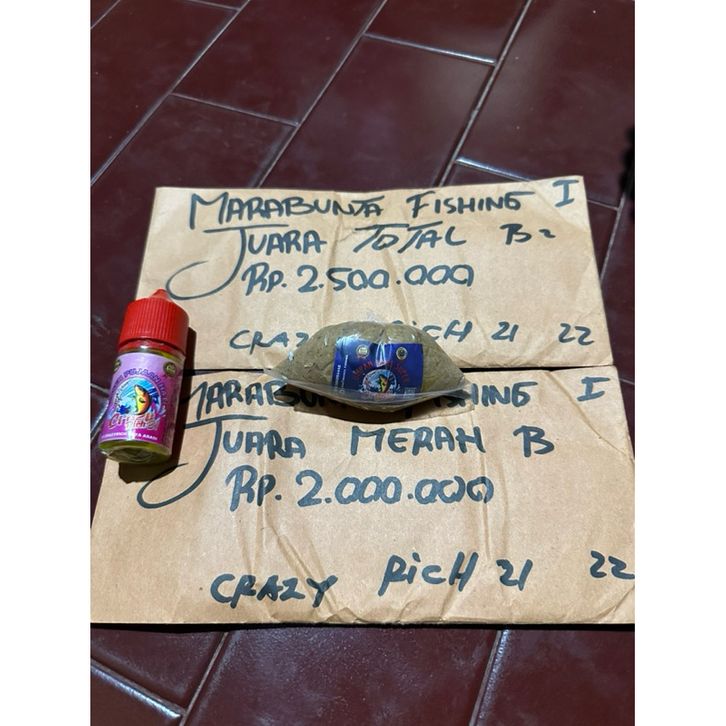 MARABUNTA FISHING I
JUARA TOTAL B2
RP. 2.500.000
CRAZY RICH 21 22
MARABUNTA FISHING I
JUARA MERAH B
RP. 2.000.000
CRAZY RICH 21 22